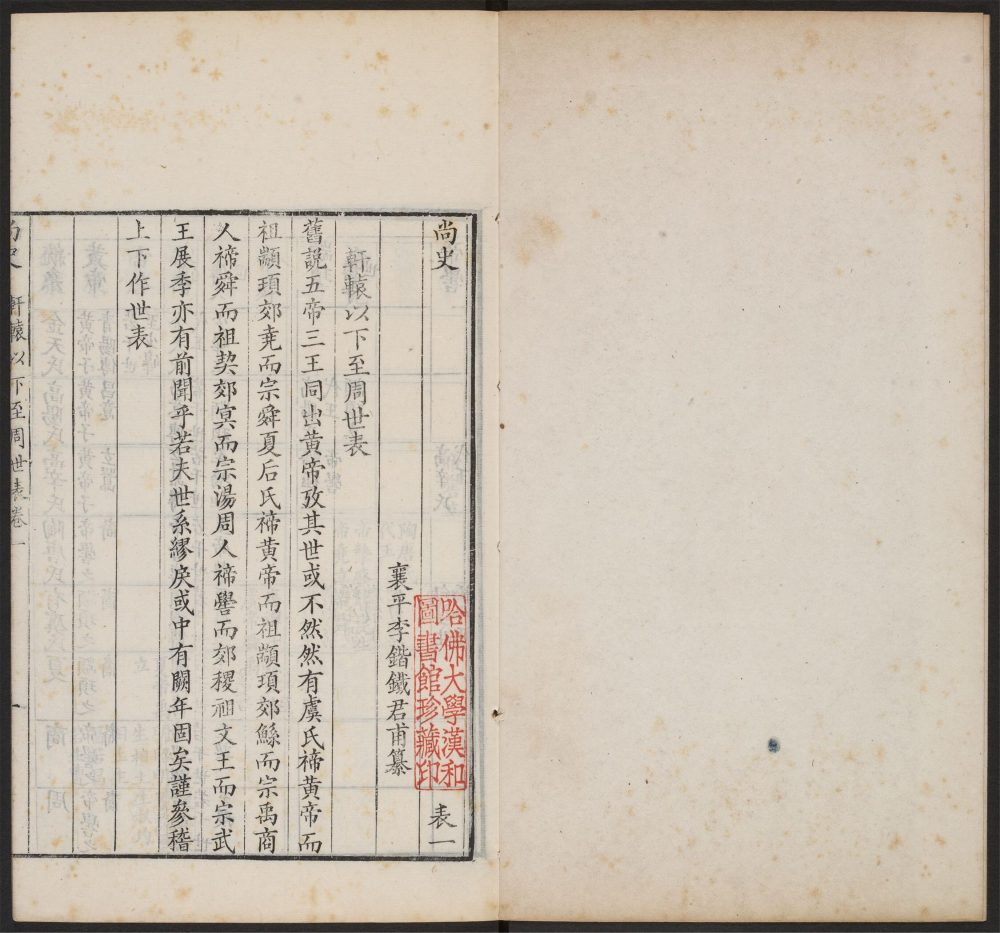 尚史 表一
襄平李鍇鐵君甫纂
軒轅以下至周世表
舊說五帝三王同出黃帝攷其世或不然然有虞氏禘黃帝而
祖顓頊郊堯而宗舜夏后氏禘黃帝而祖顓頊郊鯀而宗禹商
人禘舜而祖契郊冥而宗湯周人禘嚳而郊稷祖文王而宗武
王展季亦有前聞乎若夫世系繆戾或中有闕年固矣謹參稽
上下作世表
尚史 軒轅以下至周世表卷一 一
哈佛大學漢和
圖書館珍藏印